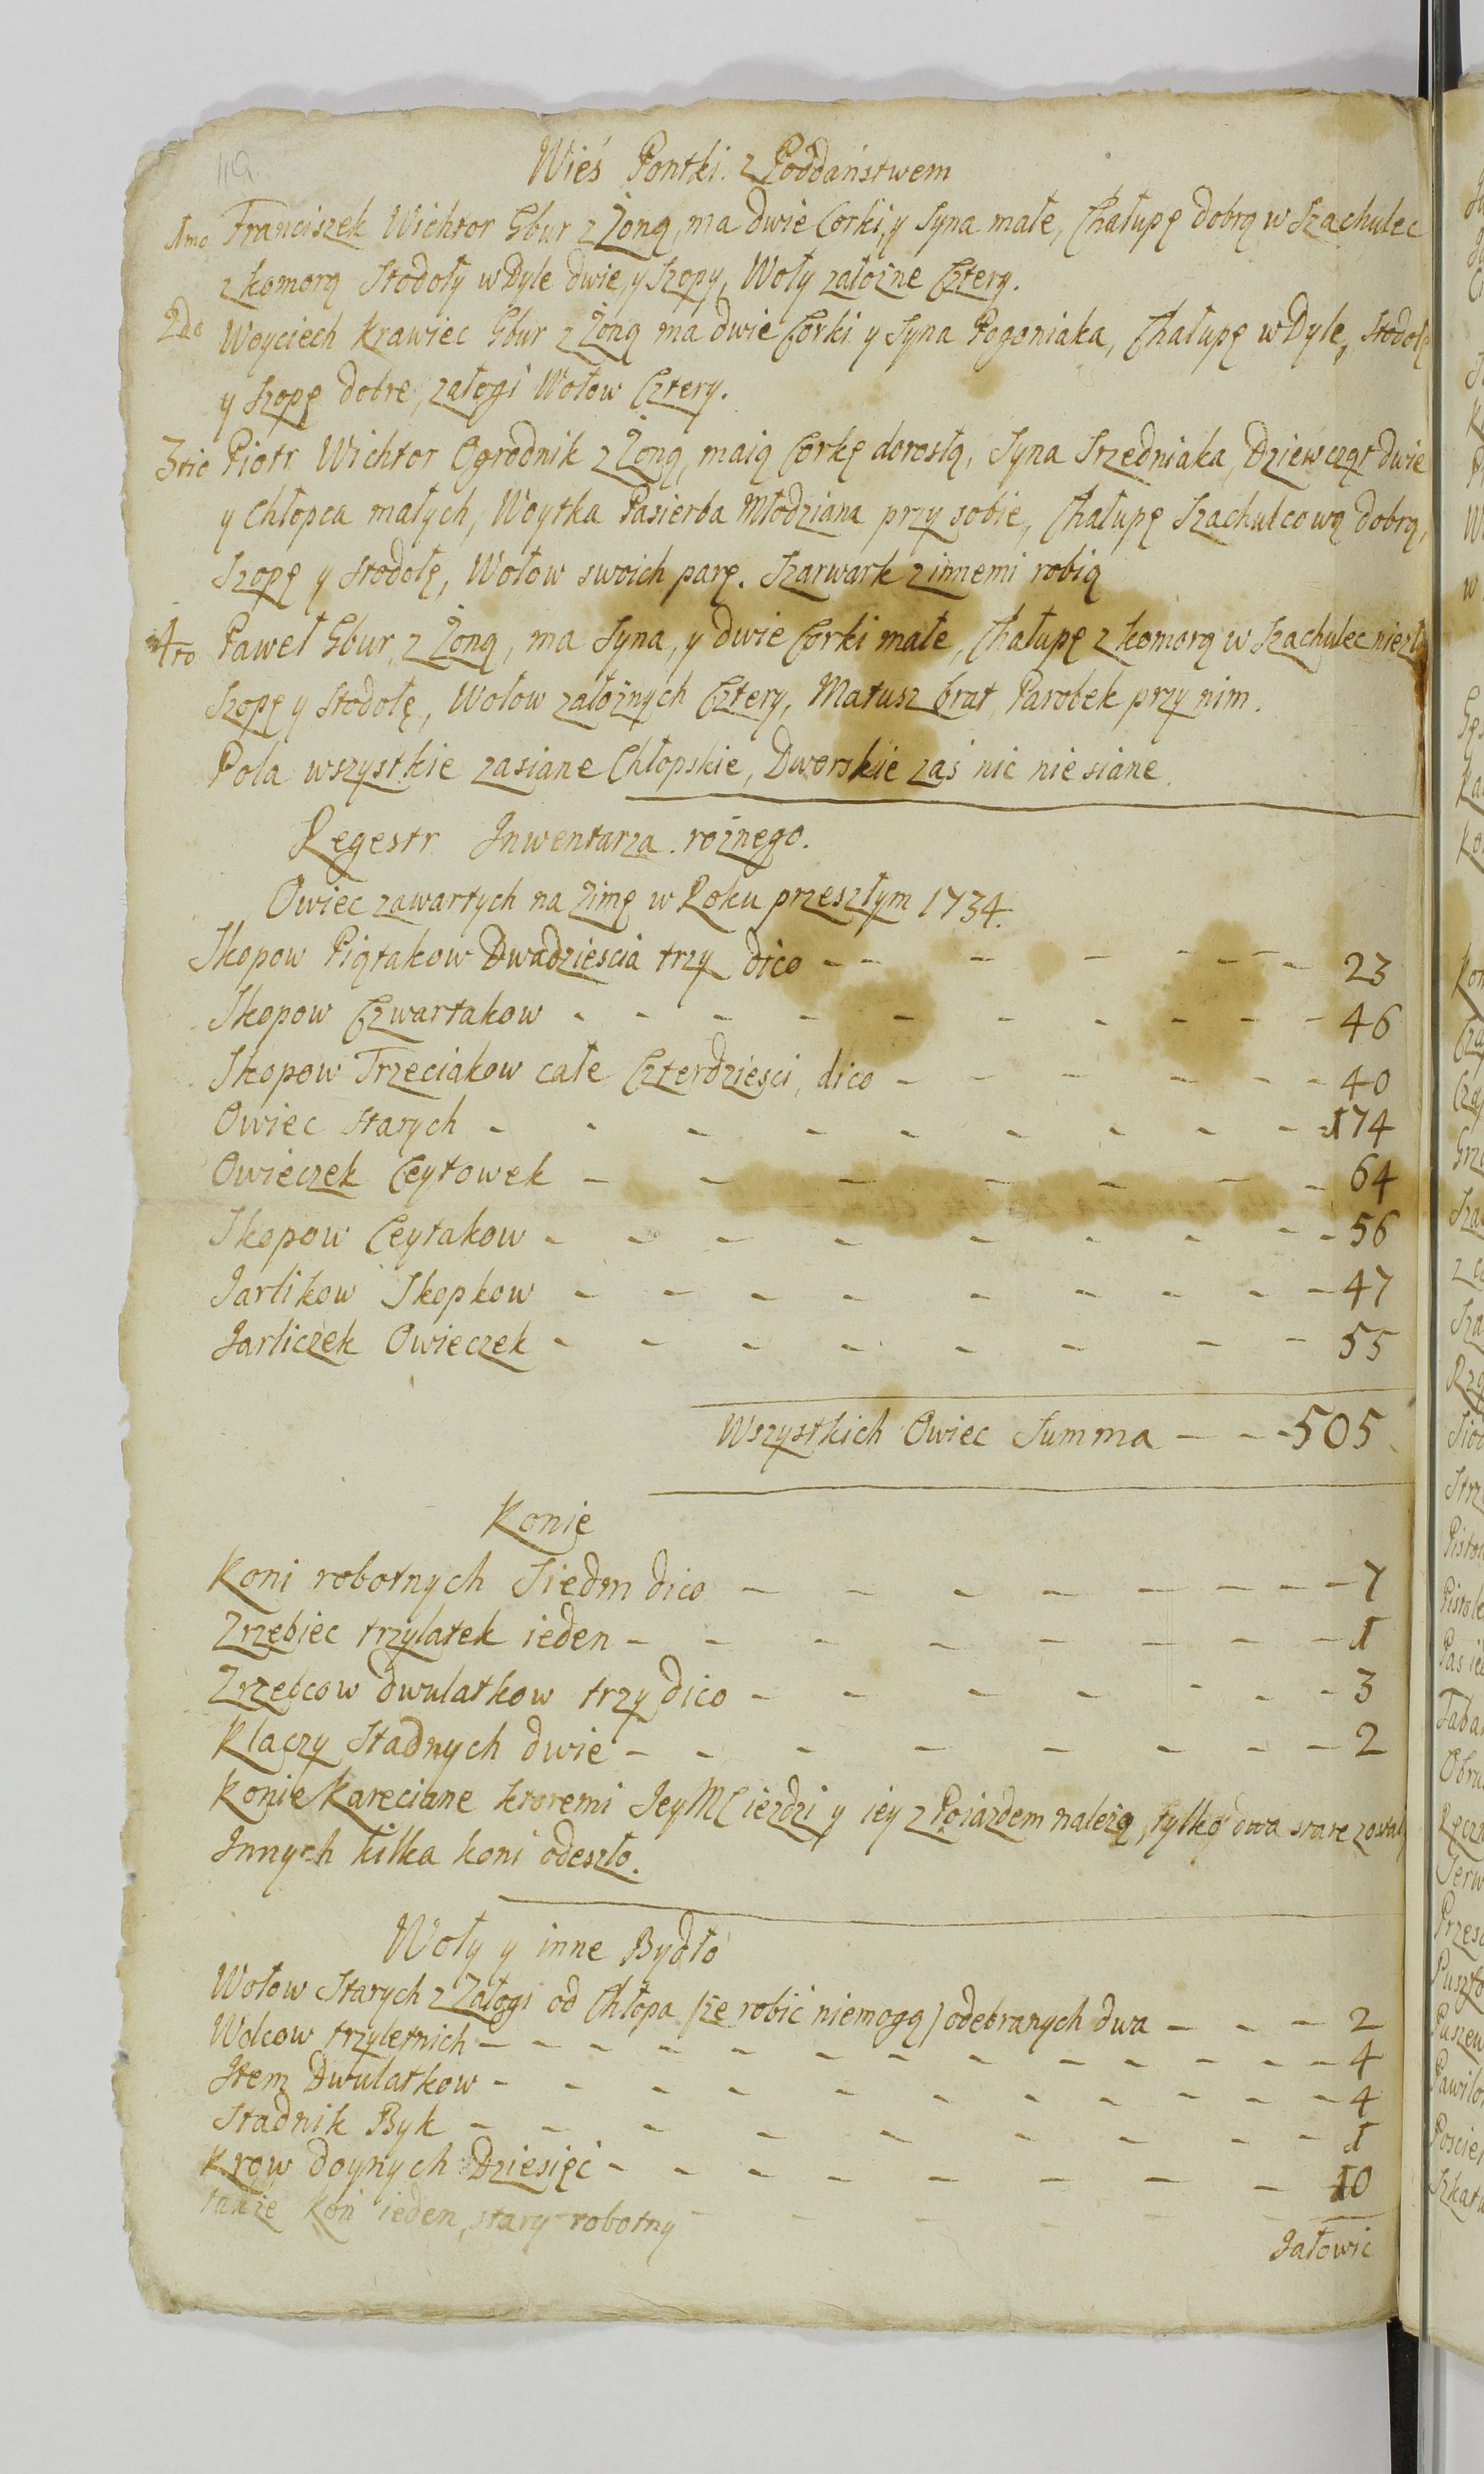 119.
Wieś Pontki. z Poddaństwem
1mo Franciszek Wichtor Gbur z Żoną, ma dwie Corki, y Syna małe, Chałupę dobrą w Szachulec
z komorą Stodoły w Dyle dwie, y Szopy, Woły załozne Cztery.
2do Woyciech Krawiec Gbur z Żoną ma dwie Corki y Syna Pogoniaka, Chałupę w Dyle, Stodołę
y Szopę dobre, załogi Wołow Cztery.
3tio Piotr Wichtor Ogrodnik z Żoną, maią Corkę dorosłą, Syna Srzedniaka, Dziewcząt dwie
y Chłopca małych, Woytka Pasierba Młodziana przy sobie, Chałupę Szachulcową dobrą,
Szopę y Stodołę, Wołow swoich parę. Szarwark z innemi robią
4to Paweł Gbur, z Żoną, ma Syna, y dwie Corki małe, Chałupę z komorą w Szachulec niezłą
Szopę y Stodołę, Wołow załoznych Cztery, Matusz brat, Parobek przy nim.
Pola wszystkie zasiane Chłopskie, Dworskie zaś nic nie siane.
Regestr Inwentarza roznego.
Owiec zawartych na Zimę w Roku przeszłym 1734.
Skopow Piątakow Dwadziescia trzy dico - - - - - - - - 23
Skopow Czwartakow - - - - - - - - - 46
Skopow Trzeciakow całe Czterdziesci, dico - - - - - - - 40
Owiec starych - - - - - - - - - 174
Owieczek Ceytowek - - - - - - - 64
Skopow Ceytakow - - - - - - - - - 56
Jarlikow Skopkow - - - - - - - - - 47
Jarliczek Owieczek - - - - - - - - 55
Wszystkich Owiec Summa - - - 505
Konie
Koni robotnych Siedm dico - - - - - - - - 7
Zrzebiec trzylatek ieden - - - - - - - - 1
Zrzebcow dwulatkow trzy dico - - - - - - - 3
Klaczy Stadnych dwie - - - - - - - - 2
Konie Kareciane ktoremi JeyMC iezdzi y iey z Poiazdem nalezą, tylko dwa stare zostały
Innych kilka koni odeszło.
Woły y inne Bydło
Wołow Starych z Załogi od Chłopa /ze robic niemogą/ odebranych dwa - - - 2
Wolcow trzyletnich - - - - - - - - - - - - 4
Item Dwulatkow - - - - - - - - - - 4
Stadnik Byk - - - - - - - - 1
Krow doynych Dziesięć - - - - - - - - 10
takze Koń ieden, stary robotny - - - - -
Jałowic